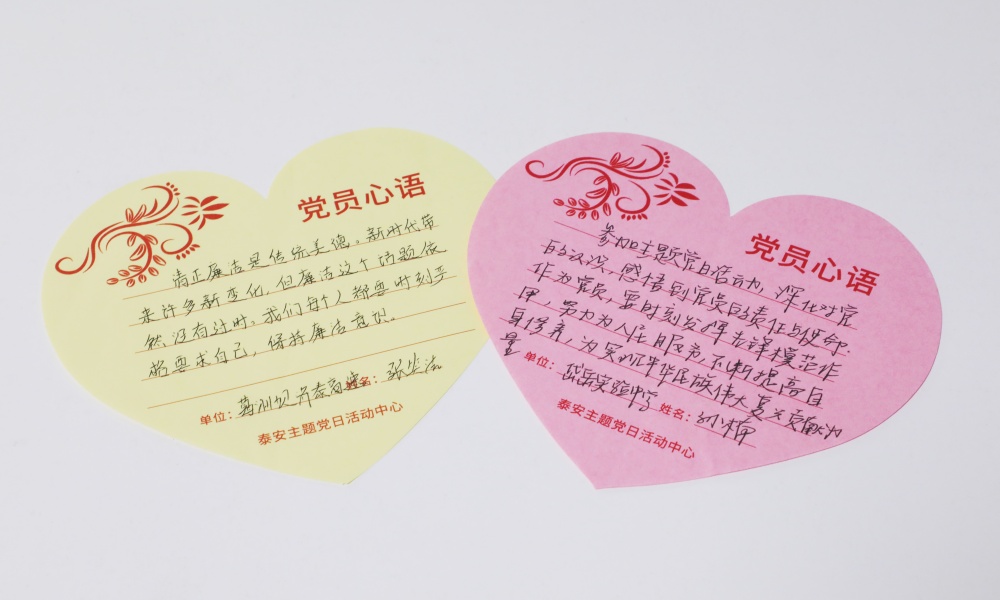 党员心语
清正廉洁是传统美德。新时代带
来许多新变化,但廉洁这个话题依
然没有过时。我们每个人都要时刻严
格要求自己,保持廉洁意识。
单位: 姓名:
泰安主题党日活动中心
党员心语
参加主题党日活动,深化对党
的认识,感悟到党员的责任与使命.
作为党员,要时刻发挥先锋模范作
用,努力为人民服务,不断提高自
身修养,为实现中华民族伟大复兴贡献力
量
单位: 岱岳实验中学 姓名: 孙
泰安主题党日活动中心